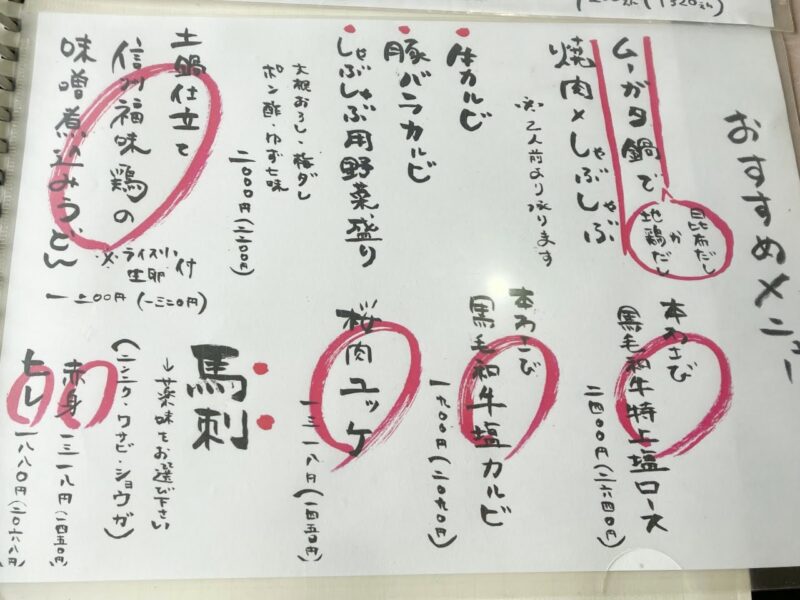 おすすめメニュー
ムーガタ鍋で
昆布だし
か
地鶏だし
焼肉×しゃぶしゃぶ
※2人前より承ります
牛カルビ
豚バラカルビ
しゃぶしゃぶ用野菜盛り
大根おろし・梅ダレ
ポン酢・ゆず七味
二〇〇〇円(二二〇〇円)
土鍋仕立て
信州福味鶏の
味噌煮込みうどん
※ライス小
生卵 付
一二〇〇円(一三二〇円)
本わさび
黒毛和牛特上塩ロース
二四〇〇円(二六四〇円)
本わさび
黒毛和牛塩カルビ
一九〇〇円(二〇九〇円)
桜肉ユッケ
一三一八円(一四五〇円)
馬刺
↓薬味をお選び下さい
(ニンニク・ワサビ・ショウガ)
赤身 一三一八円(一四五〇円)
ヒレ 一八八〇円(二〇六八円)